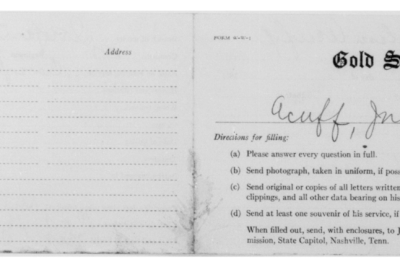 Address
FORM W-W-1
Gold S
Acuff, Jn
Directions for filling:
(a) Please answer every question in full.
(b) Send photograph, taken in uniform, if poss
(c) Send original or copies of all letters written
clippings, and all other data bearing on his
(d) Send at least one souvenir of his service, if
When filled out, send, with enclosures, to J
mission, State Capitol, Nashville, Tenn.